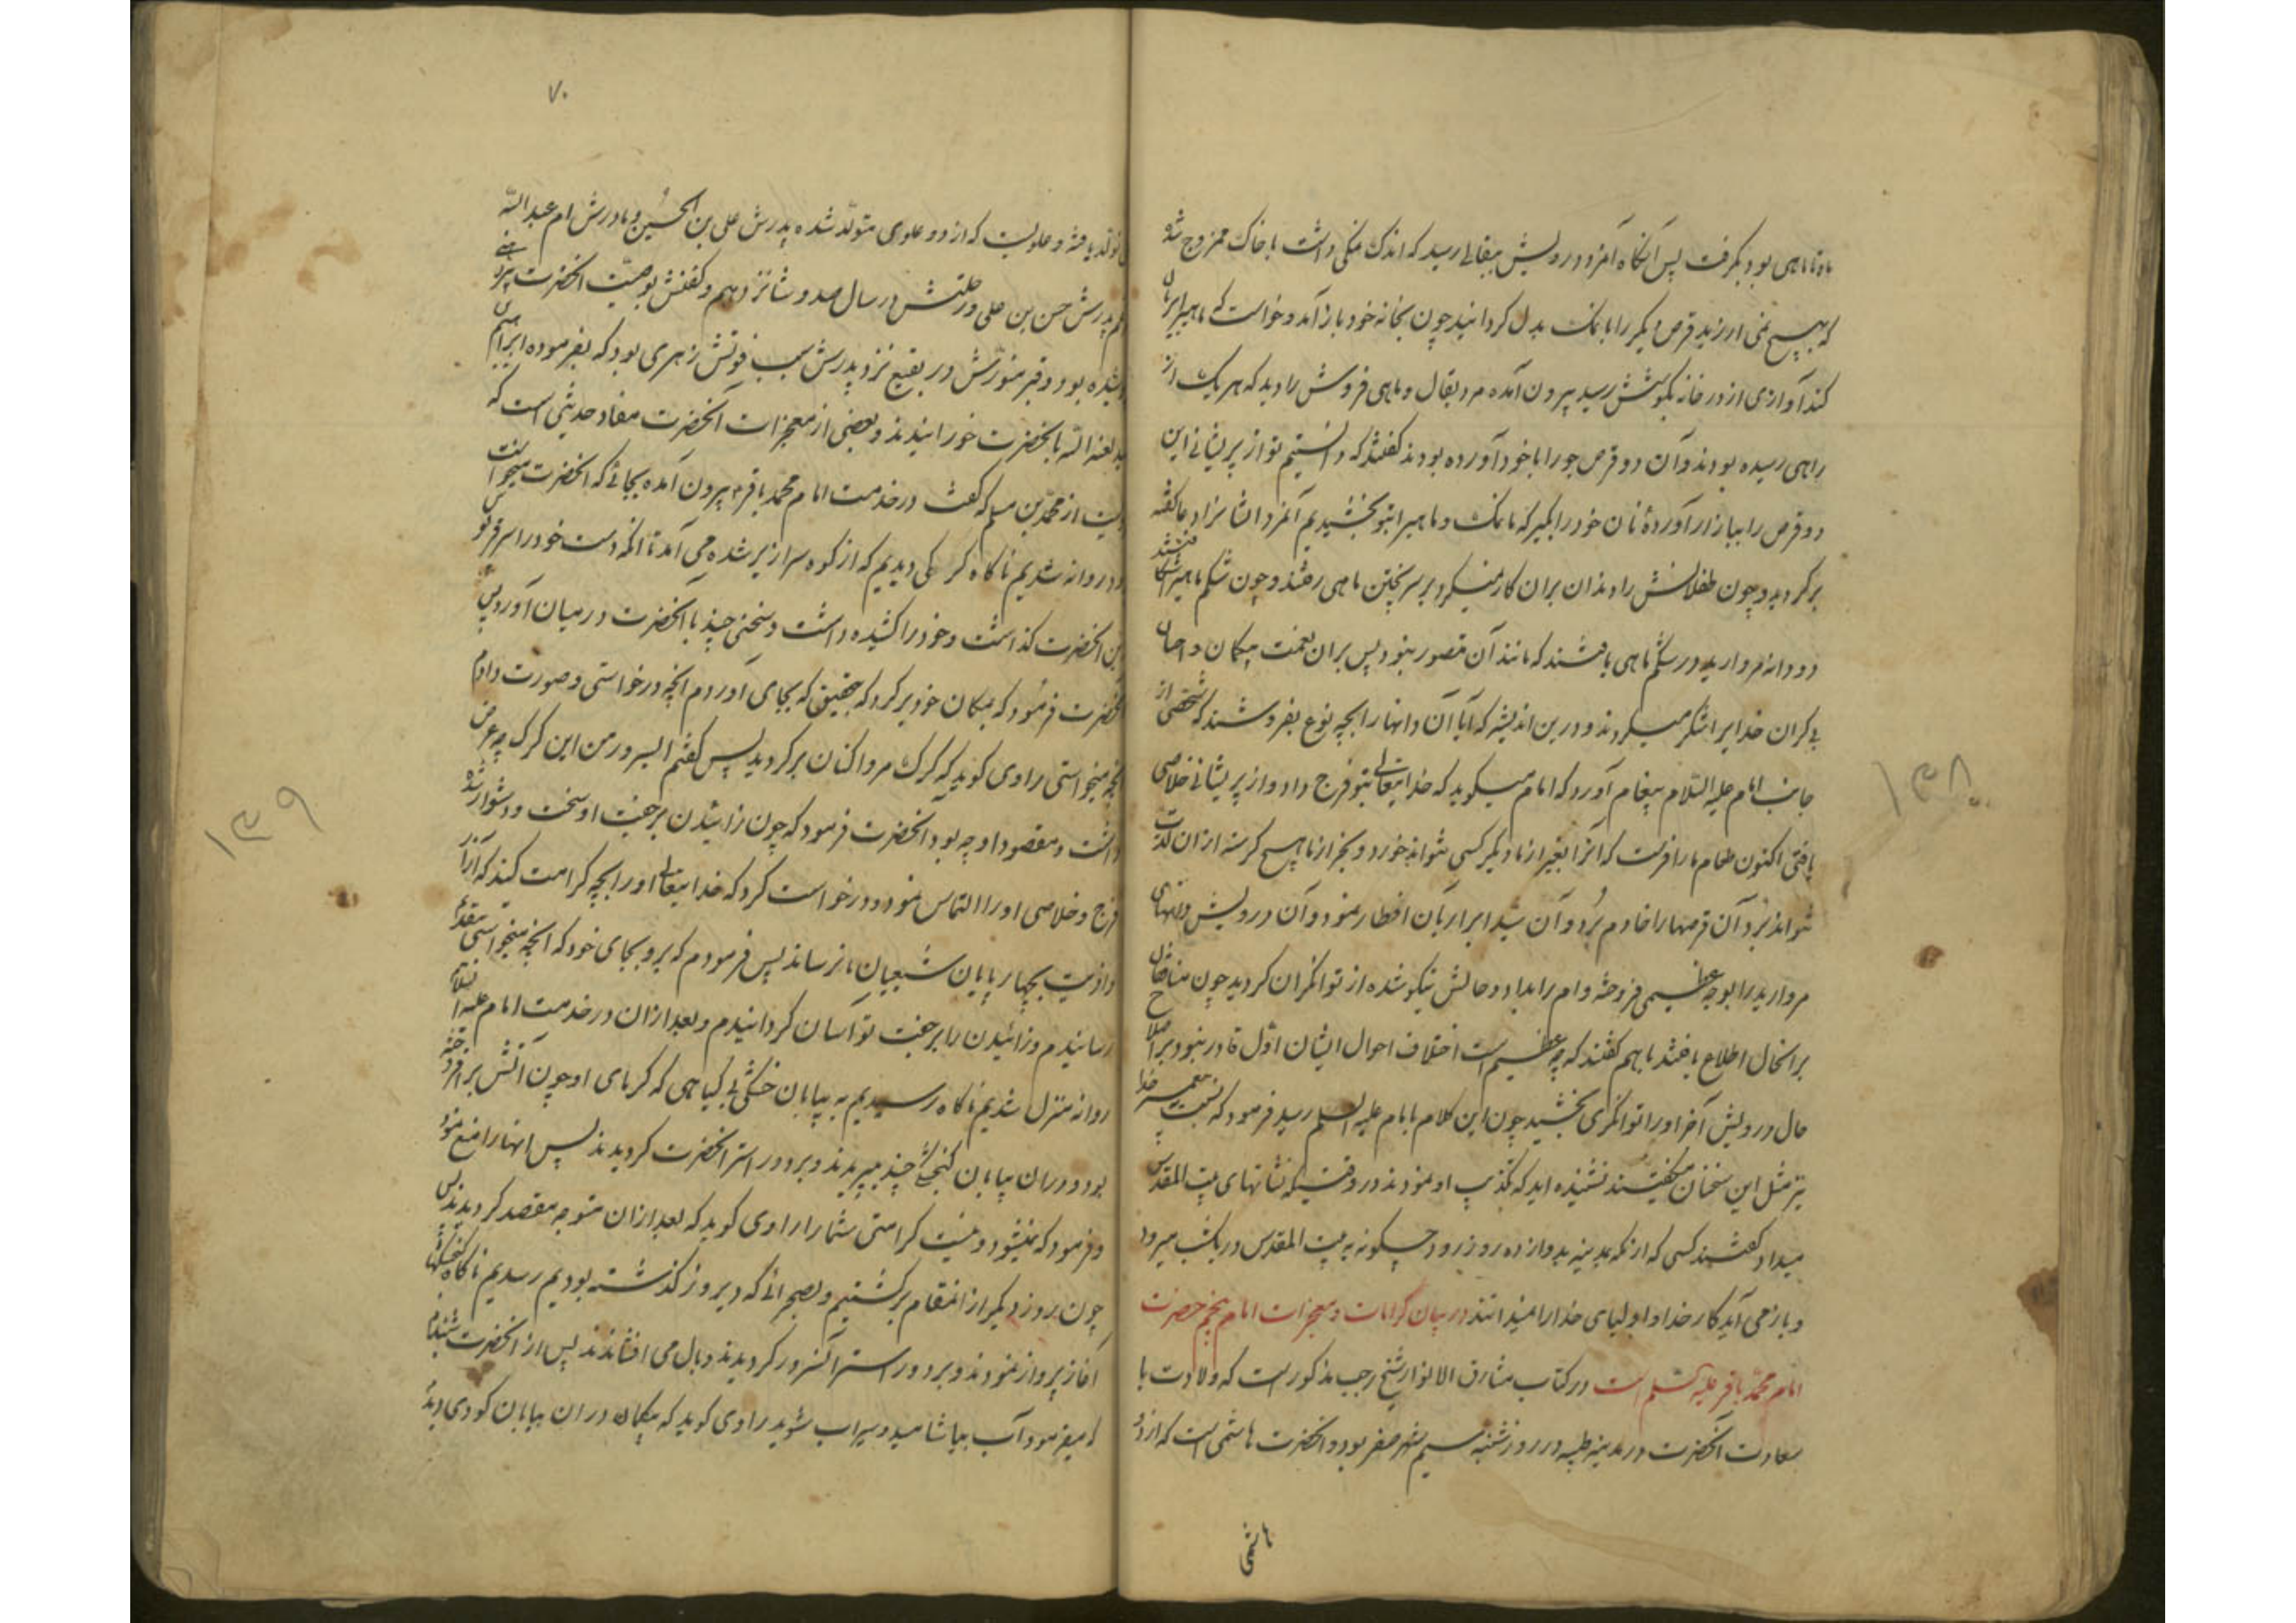 باو تا ماهی بود بگرفت پس آنگاه آنمرد درویش ببقالی رسید که اندک نمکی داشت با خاک ممزوج شده
که بهیچ نمی ارزید قرص دیگر را با نمک بدل گردانید چون بخانه خود باز آمد و خواست که ماهیرا بریان
کند آوازی از در خانه بگوشش رسید بیرون آمده مرد بقال و ماهی فروش را دید که هر یک از
راهی رسیده بودند و آن دو قرص جو را با خود آورده بودند گفتند که دانستیم تو از پریشانی این
دو قرص را ببازار آوردۀ نان خود را بگیر که ما نمک و ماهیرا بتو بخشیدیم آنمرد ایشانرا دعا گفته
برگردید و چون طفلانش را دندان بران کار نمیکرد بر سر پختن ماهی رفتند و چون شکم ماهیرا شکافتند
دو دانه مروارید در شکم ماهی یافتند که مانند آن متصور نبود پس بران نعمت بیکران و احسان
بی کران خدایرا شکر میکردند و درین اندیشه که آیا آن دانها را بچه نوع بفروشند که شخصی از
جانب امام علیه السلام پیغام آورد که امام میگوید که خدایتعالی بتو فرج داد و از پریشانی خلاصی
یافتی اکنون طعام ما را فرست که آنرا بغیر از ما دیگر کسی نتواند خورد و بجز از ما هیچ گرسنه از ان لذت
نتواند برد آن قرصها را خادم برد و آن سید ابرار بآن افطار نمود و آن درویش دانهای
مروارید را بوجه عظیمی فروخته وام را بداد و حالش نیکو شده از توانگران گردید چون منافقان
بر انحال اطلاع یافتند با هم گفتند که چه عظیم است اختلاف احوال ایشان اول قادر نبود بر اصلاح
حال درویش آخر او را توانگری بخشید چون این کلام بامام علیه السلم رسید فرمود که نسبت به پیغمبر خدا
نیز مثل این سخنان میگفتند نشنیده اید که تکذیب او نمودند در وقتیکه نشانهای بیت المقدس
میداد گفتند کسی که از مکه بمدینه بدوازده روز رود چگونه به بیت المقدس در یکشب میرود
و باز می آید کار خدا و اولیای خدا را نمیدانند در بیان کرامات و معجزات امام پنجم حضرت
امام محمد باقر علیه السلم است در کتاب مشارق الانوار شیخ رجب مذکور است که ولادت با
سعادت آنحضرت در مدینه طیبه در روز شنبه سیم شهر صفر بود و آنحضرت هاشمی است که از دو
هاشمی
۱۳۸
۷۰
تولد یافته و علویست که از دو علوی متولد شده پدرش علی بن الحسین و مادرش ام عبدالله
پدرش حسن بن علی و رحلتش در سال صد و شانزدهم و کفنش بوصیت آنحضرت
بود و قبر منورش در بقیع نزد پدرش سبب فوتش زهری بود که بفرموده ابراهیم
لعنه الله بآنحضرت خورانیدند و بعضی از معجزات آنحضرت مفاد حدیثی است که
از محمد بن مسلم که گفت در خدمت امام محمد باقر بیرون آمده بجائی که آنحضرت میخواست
روانه شدیم ناگاه گرگی دیدیم که از کوه سرازیر شده می آمد تا آنکه دست خود را بر قربوس
زین آنحضرت گذاشت و خود را کشیده داشت و سخنی چند با آنحضرت در میان آورد پس
آنحضرت فرمود که بمکان خود برگرد که بتحقیق که بجای آوردم آنچه درخواستی و صورت دادم
آنچه میخواستی راوی گوید که گرگ مرواکنان برگردید پس گفتم ای سرور من این گرگ چه عرض
داشت و مقصود او چه بود آنحضرت فرمود که چون زائیدن بر جفت او سخت و دشوار شده
فرج و خلاصی او را التماس نمود و درخواست کرد که خدایتعالی او را بچه کرامت کند که آزار
و اذیت بچهار پایان شیعیان ما نرساند پس فرمودم که برو بجای خود که آنچه میخواستی بتقدیم
رسانیدم و زائیدن را بر جفت تو آسان گردانیدم و بعد از ان در خدمت امام علیه السلام
روانه منزل شدیم ناگاه رسیدیم به بیابان خشکی بی گیاهی که گرمای او چون آتش بر افروخته
بود و دران بیابان گنجشکی چند میپریدند و بر دور استر آنحضرت گردیدند پس آنها را منع نمود
و فرمود که نمیشود و نیست کرامتی شما را راوی گوید که بعد از ان متوجه مقصد گردیدند پس
چون بروز دیگر از انمقام برگشتیم و بصحرائی که دیروز گذشته بودیم رسیدیم ناگاه گنجشکها
آغاز پرواز نمودند و بر دور استر آنسرور گردیدند و بال می افشاندند پس از آنحضرت شنیدم
که میفرمود آب بیاشامید و سیراب شوید راوی گوید که بیکبار دران بیابان گودی دیده
۱۳۹